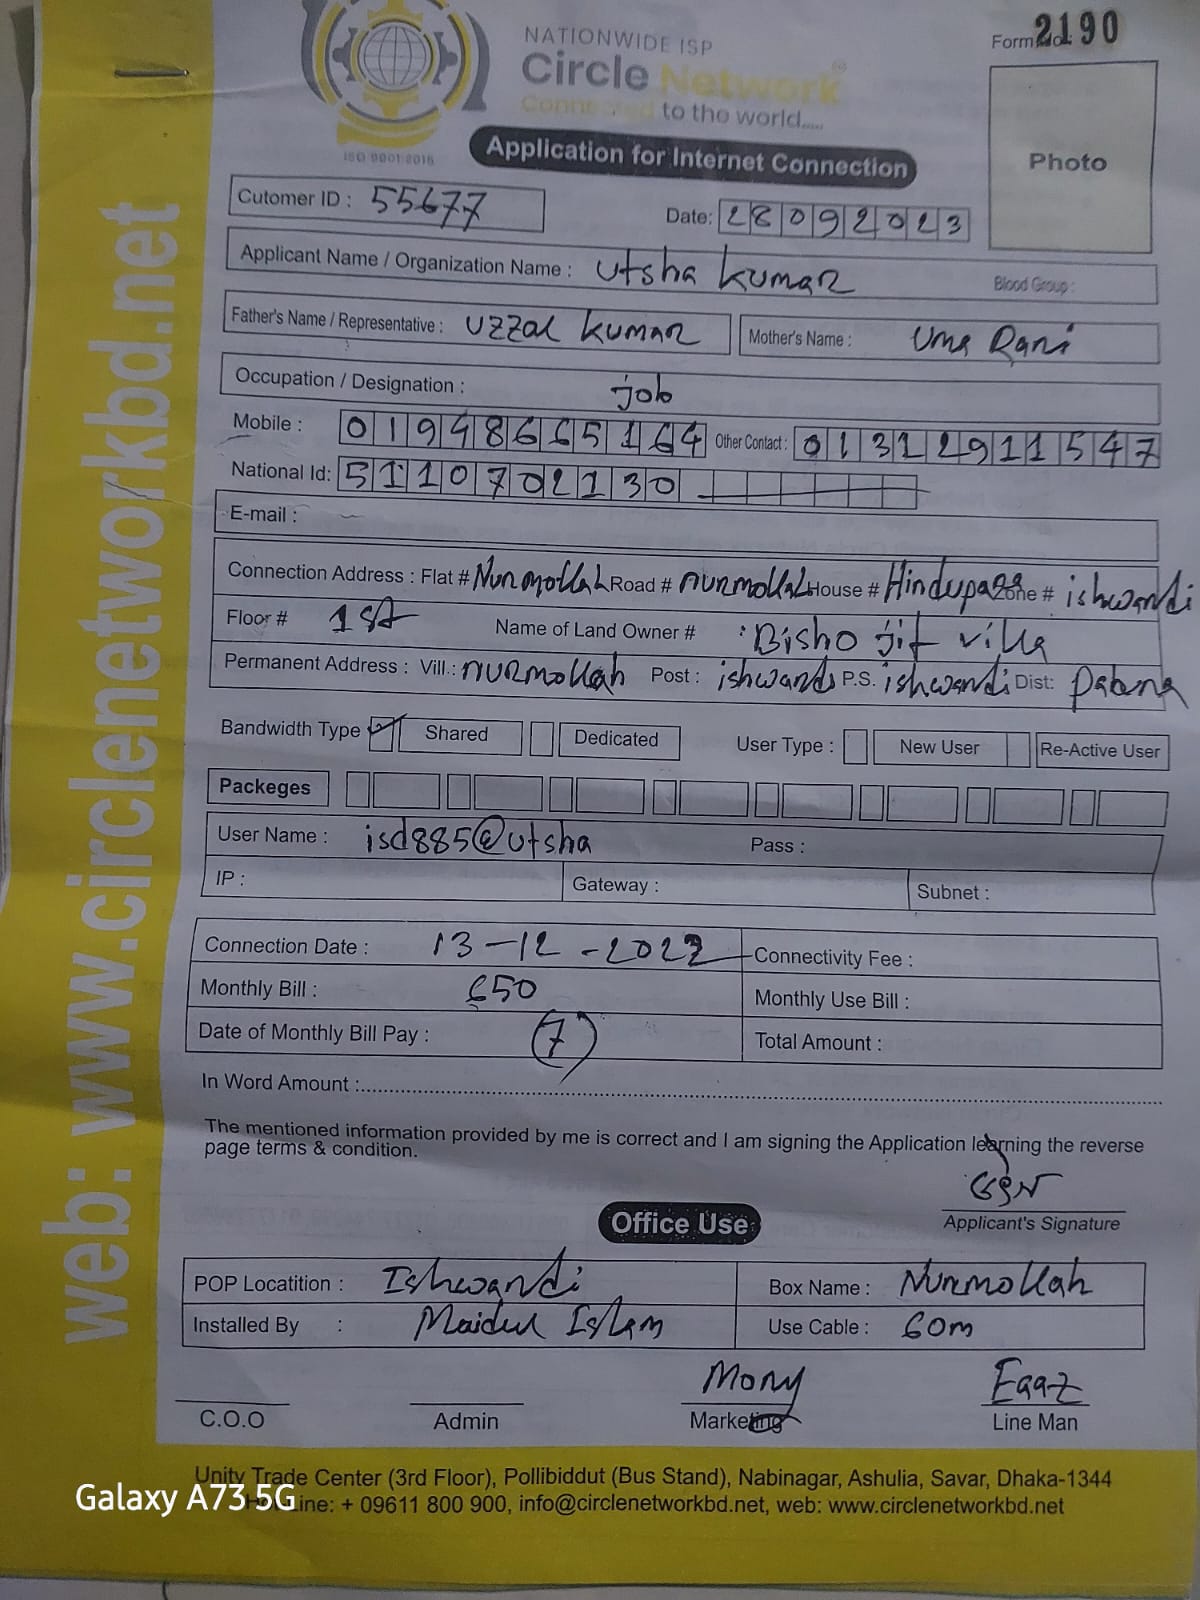 Form No. 2190
NATIONWIDE ISP
Circle Network
Connected to the world.....
ISO 9001:2015
Application for Internet Connection
Photo
Cutomer ID : 55677
Date: 28092023
Applicant Name / Organization Name : Utsha kumar Blood Group :
Father's Name / Representative : Uzzal kumar Mother's Name : Uma Rani
Occupation / Designation : job
Mobile : 01948665164 Other Contact : 01312911547
National Id: 5110702130
E-mail :
Connection Address : Flat # Nurmollah Road # nurmollah House # Hindupara Zone # ishwardi
Floor # 1st Name of Land Owner # : Bisho jit villa
Permanent Address : Vill.: nurmollah Post : ishwardi P.S. ishwardi Dist: Pabna
Bandwidth Type Shared Dedicated User Type : New User Re-Active User
Packeges
User Name : isd885@utsha Pass :
IP : Gateway : Subnet :
Connection Date : 13-12-2022 Connectivity Fee :
Monthly Bill : 650 Monthly Use Bill :
Date of Monthly Bill Pay : 7 Total Amount :
In Word Amount :
The mentioned information provided by me is correct and I am signing the Application learning the reverse
page terms & condition.
Applicant's Signature
Office Use
POP Locatition : Ishwardi Box Name : Nurmollah
Installed By : Maidul Islam Use Cable : 60m
Mony
C.O.O Admin Marketing Line Man
Unity Trade Center (3rd Floor), Pollibiddut (Bus Stand), Nabinagar, Ashulia, Savar, Dhaka-1344
Hot Line: + 09611 800 900, info@circlenetworkbd.net, web: www.circlenetworkbd.net
web: www.circlenetworkbd.net
Galaxy A73 5G